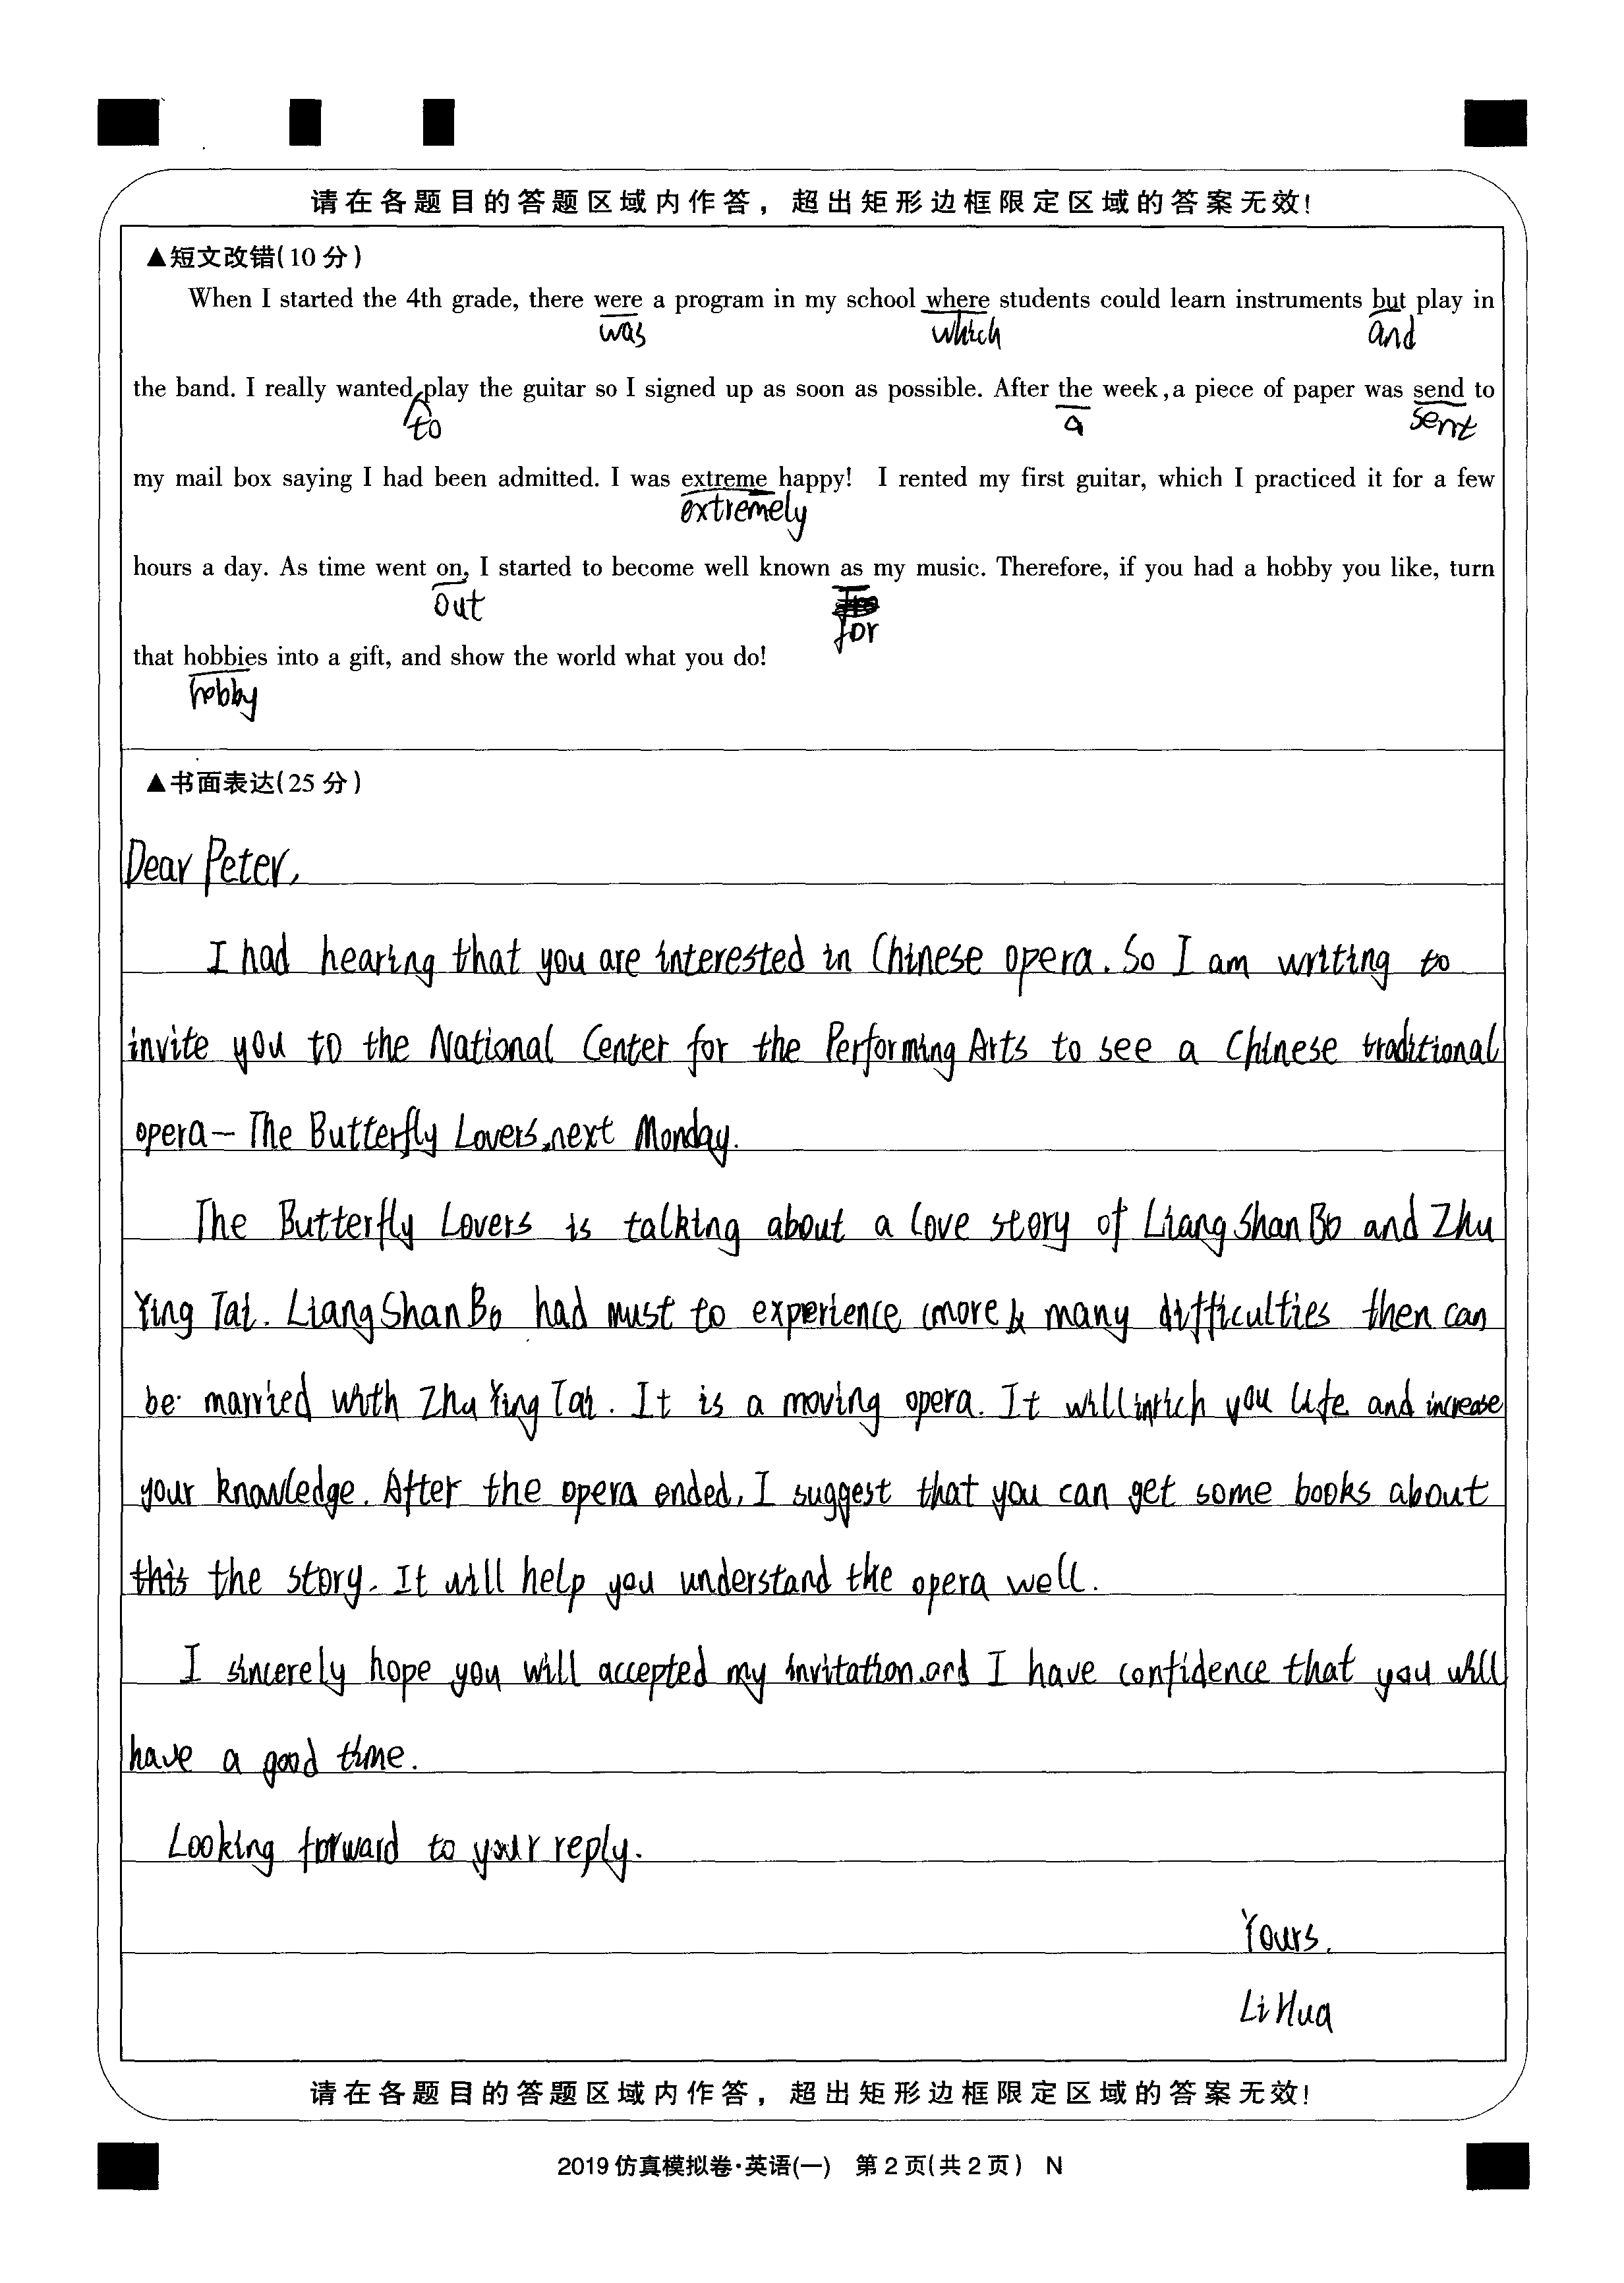 请在各题目的答题区域内作答，超出矩形边框限定区域的答案无效!
▲短文改错(10分)
When I started the 4th grade, there were a program in my school where students could learn instruments but play in
was which and
the band. I really wanted play the guitar so I signed up as soon as possible. After the week,a piece of paper was send to
to a sent
my mail box saying I had been admitted. I was extreme happy! I rented my first guitar, which I practiced it for a few
extremely
hours a day. As time went on, I started to become well known as my music. Therefore, if you had a hobby you like, turn
out for
that hobbies into a gift, and show the world what you do!
hobby
▲书面表达(25分)
Dear Peter,
I had hearing that you are interested in Chinese opera. So I am writing to
invite you to the National Center for the Performing Arts to see a Chinese traditional
opera— The Butterfly Lovers,next Monday.
The Butterfly Lovers is talking about a love story of Liang Shan Bo and Zhu
Ying Tai. Liang Shan Bo had must to experience (more & many difficulties then can
be married with Zhu Ying Tai. It is a moving opera. It will inrich you life and increase
your knowledge. After the opera ended, I suggest that you can get some books about
this the story. It will help you understand the opera well.
I sincerely hope you will accepted my invitation.and I have confidence that you will
have a good time.
Looking forward to your reply.
Yours,
Li Hua
请在各题目的答题区域内作答，超出矩形边框限定区域的答案无效!
2019仿真模拟卷·英语(一) 第2页(共2页) N